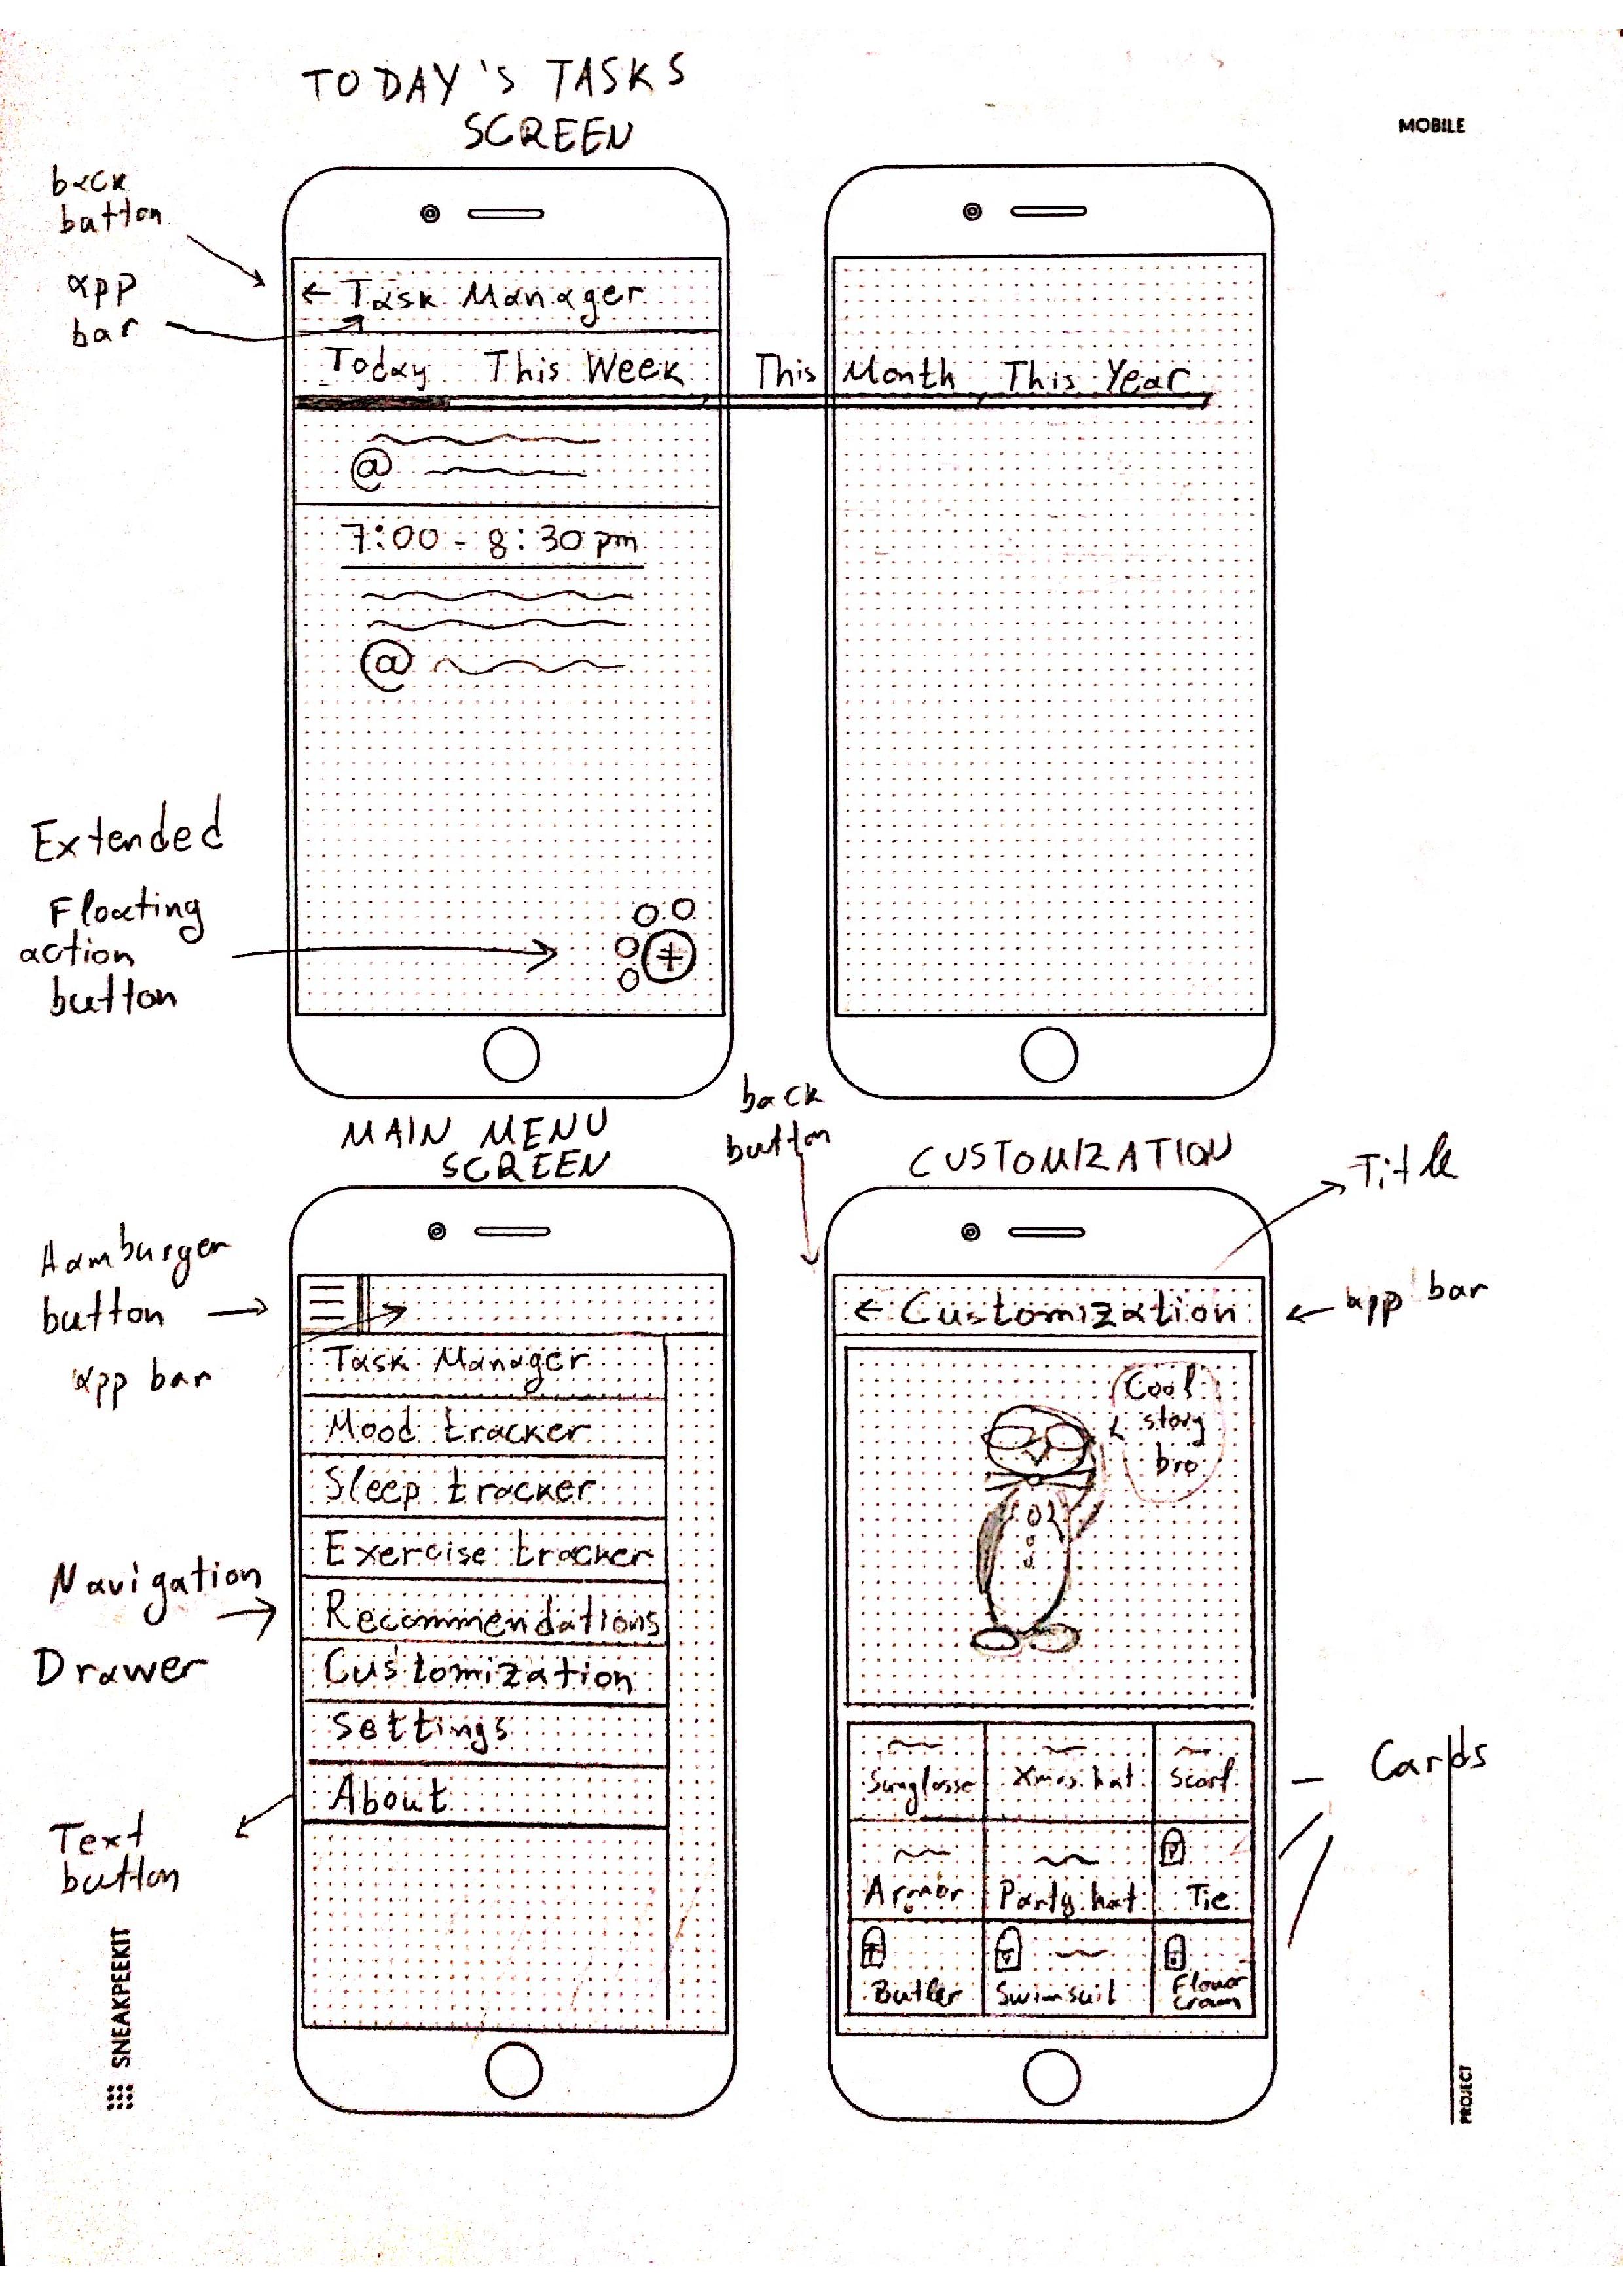 TODAY'S TASKS
SCREEN
MOBILE
back
button
app
bar
← Task Manager
Today This Week This Month This Year
@
7:00 - 8:30pm
@
Extended
Floating
action
button
+
MAIN MENU
SCREEN
Hamburger
button
app bar
Task Manager
Mood tracker
Sleep tracker
Exercise tracker
Recommendations
Customization
Settings
About
Navigation
Drawer
Text
button
back
button
CUSTOMIZATION
Title
← Customization
app bar
Cool
story
bro
Sunglasse Xmas hat Scarf
Armor Party hat Tie
Butler Swimsuit Flower
crown
Cards
SNEAKPEEKIT
PROJECT